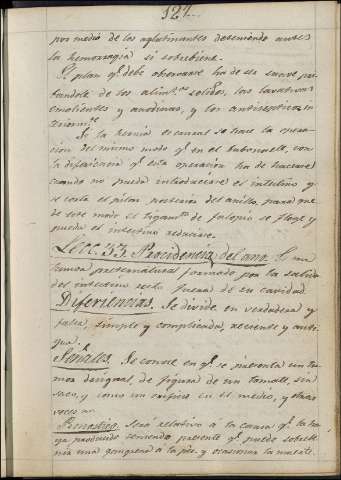 127.
por medio de los aglutinantes deteniendo antes
la hemorragia si sobreviene.
El plan q.e debe observarse ha de ser suave pri-
bandole de los alim.tos solidos, las lavativas
emolientes y anodinas, y los antisepticos in
teriorm.te
Si la hernia es crural se hace la opera-
cion del mismo modo q.e en el bubonocele, con
la diferencia q.e esta operacion ha de hacerse
cuando no pueda introducirse el intestino y
se corta el pilar posterior del anillo, para que
de este modo el ligam.to de falopio se floge y
pueda el intestino reducirse.
Licc. 33. Procidencia del ano. Es un
tumor preternatural formado por la salida
del intestino recto fuera de su cavidad.
Diferiencias. Se divide, en verdadera y
falsa, simple y complicada, reciente y anti-
gua.
Señales. Se conoce en q.e se presenta un tu-
mor desigual, de figura de un tomate, sin
saco, y como un orificio en el medio, y otras
veces
Pronostico. Será relativo á la causa q.e la ha-
ya producido teniendo presente q.e puede sobrebe-
nir una gangrena á la p.te y ocasionar la muerte.